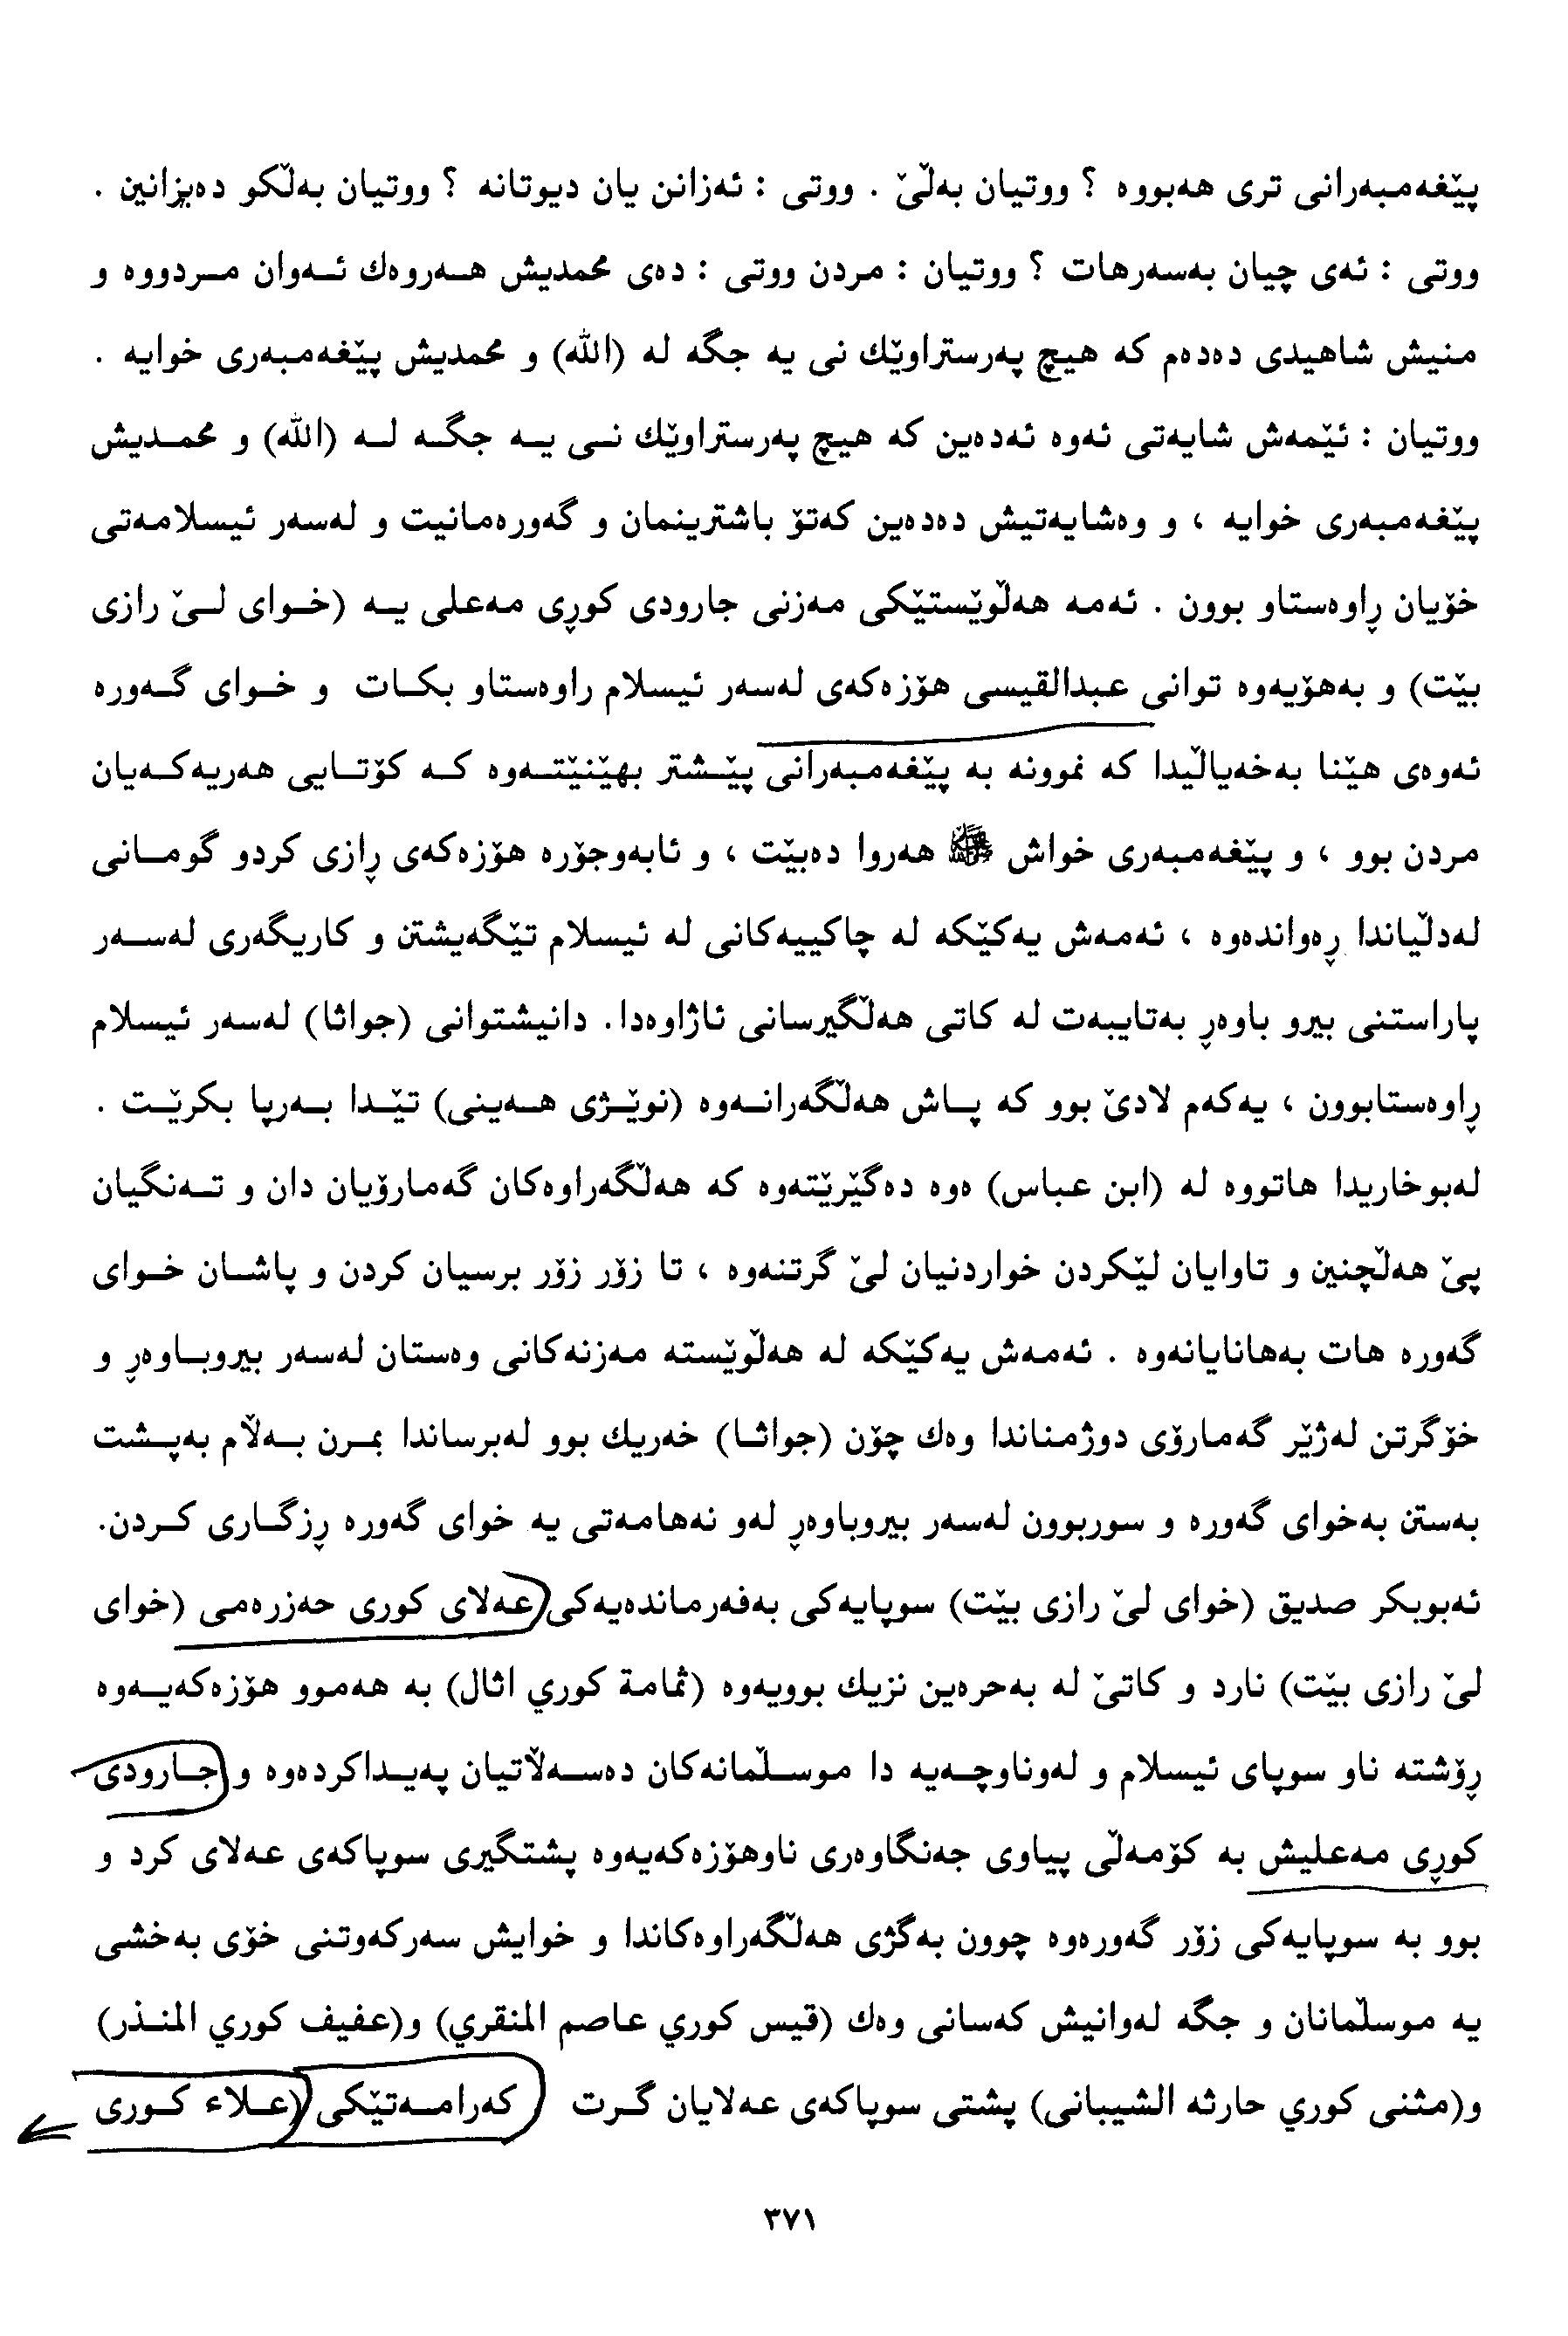 پێغەمبەرانی تری هەبووە ؟ ووتیان بەڵێ . ووتی : ئەزانن یان دیوتانە ؟ ووتیان بەڵکو دەیزانین .
ووتی : ئەی چیان بەسەرهات ؟ ووتیان : مردن ووتی : دەی محمدیش هەروەك ئەوان مردووە و
منیش شاهیدی دەدەم کە هیچ پەرستراوێك نی یە جگە لە (الله) و محمدیش پێغەمبەری خوایە .
ووتیان : ئێمەش شایەتی ئەوە ئەدەین کە هیچ پەرستراوێك نی یە جگە لە (الله) و محمدیش
پێغەمبەری خوایە ، و وەشایەتیش دەدەین کەتۆ باشترینمان و گەورەمانیت و لەسەر ئیسلامەتی
خۆیان ڕاوەستاو بوون . ئەمە هەڵوێستێکی مەزنی جارودی کوڕی مەعلی یە (خوای لێ رازی
بێت) و بەهۆیەوە توانی عبدالقیسی هۆزەکەی لەسەر ئیسلام راوەستاو بکات و خوای گەورە
ئەوەی هێنا بەخەیاڵیدا کە نموونە بە پێغەمبەرانی پێشتر بهێنێتەوە کە کۆتایی هەریەکەیان
مردن بوو ، و پێغەمبەری خواش ﷺ هەروا دەبێت ، و ئابەوجۆرە هۆزەکەی ڕازی کردو گومانی
لەدڵیاندا ڕەواندەوە ، ئەمەش یەکێکە لە چاکییەکانی لە ئیسلام تێگەیشتن و کاریگەری لەسەر
پاراستنی بیرو باوەڕ بەتایبەت لە کاتی هەڵگیرسانی ئاژاوەدا. دانیشتوانی (جواثا) لەسەر ئیسلام
ڕاوەستابوون ، یەکەم لادێ بوو کە پاش هەڵگەرانەوە (نوێژی هەینی) تێدا بەرپا بکرێت .
لەبوخاریدا هاتووە لە (ابن عباس) ەوە دەگێڕێتەوە کە هەڵگەراوەکان گەمارۆیان دان و تەنگیان
پێ هەڵچنین و تاوایان لێکردن خواردنیان لێ گرتنەوە ، تا زۆر زۆر برسیان کردن و پاشان خوای
گەورە هات بەهانایانەوە . ئەمەش یەکێکە لە هەڵوێستە مەزنەکانی وەستان لەسەر بیروباوەڕ و
خۆگرتن لەژێر گەمارۆی دوژمناندا وەك چۆن (جواثا) خەریك بوو لەبرساندا بمرن بەڵام بەپشت
بەستن بەخوای گەورە و سوربوون لەسەر بیروباوەڕ لەو نەهامەتی یە خوای گەورە ڕزگاری کردن.
ئەبوبکر صدیق (خوای لێ رازی بێت) سوپایەکی بەفەرماندەیەکی (عەلای کوری حەزرەمی (خوای
لێ رازی بێت) نارد و کاتێ لە بەحرەین نزیك بوویەوە (ثمامة كوري اثال) بە هەموو هۆزەکەیەوە
ڕۆشتە ناو سوپای ئیسلام و لەوناوچەیە دا موسڵمانەکان دەسەڵاتیان پەیداکردەوە و جارودی
کوڕی مەعلیش بە کۆمەڵی پیاوی جەنگاوەری ناوهۆزەکەیەوە پشتگیری سوپاکەی عەلای کرد و
بوو بە سوپایەکی زۆر گەورەوە چوون بەگژی هەڵگەراوەکاندا و خوایش سەرکەوتنی خۆی بەخشی
یە موسڵمانان و جگە لەوانیش کەسانی وەك (قيس كوري عاصم المنقري) و(عفيف كوري المنذر)
و(مثنى كوري حارثه الشيباني) پشتی سوپاکەی عەلایان گرت کەرامەتێکی (علاء کوری
٣٧١